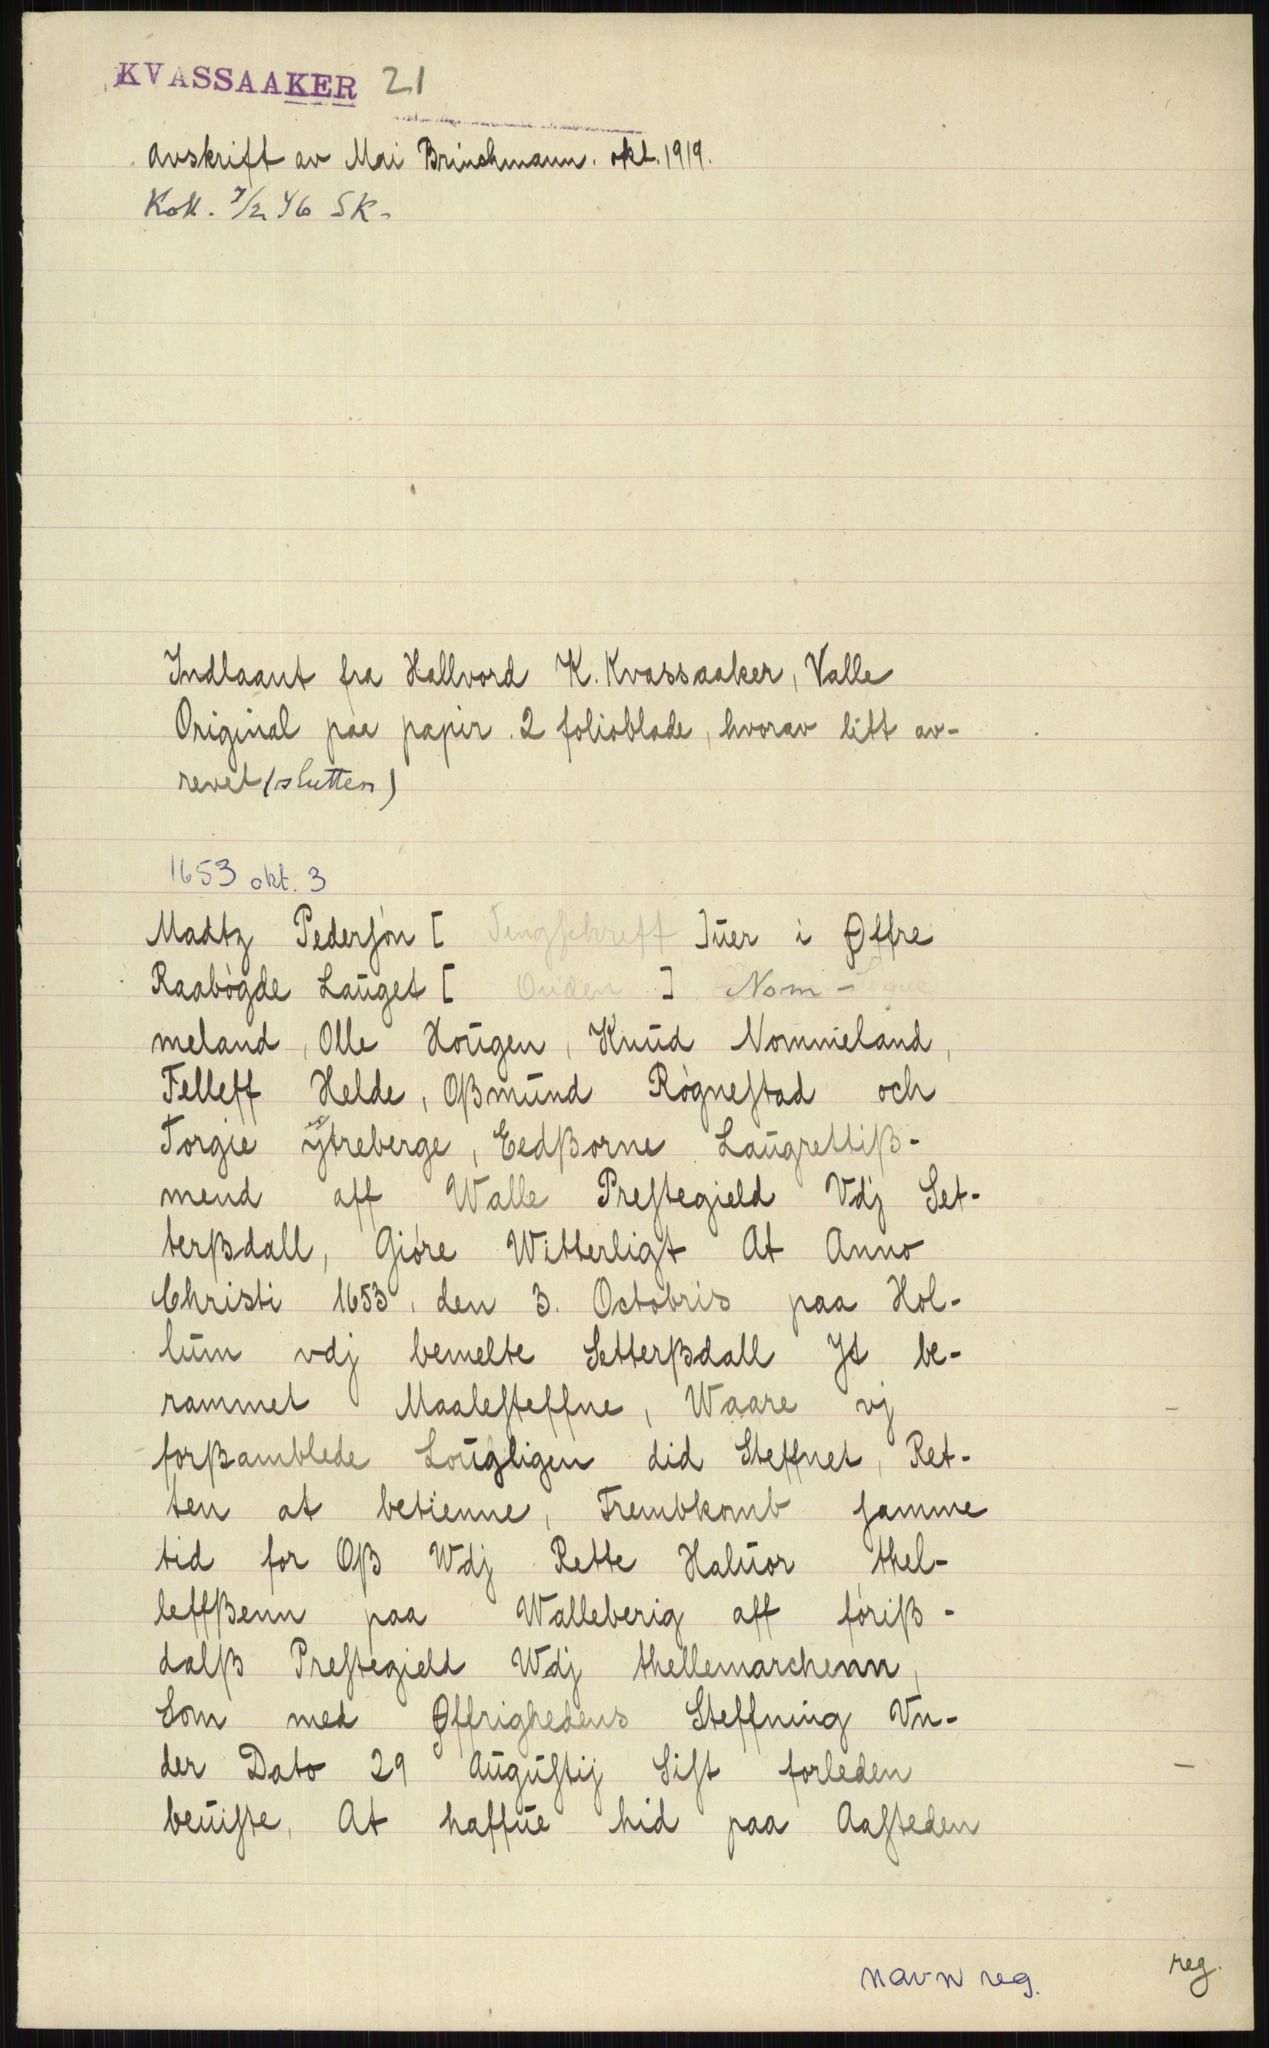 KVASSAAKER 21
Avskrift av Mai Brinchmann. okt. 1919.
Koll. 7/2 46 SK-
Indlaant fra Hallvord K. Kvassaaker, Valle
Original paa papir. 2 folioblade, hvorav litt av-
revet (slutten)
1653 okt. 3
Madtz Pedersøn [ Tingschreff ]ŭer i Øffre
Raabøgde Laŭget [ Ouden ] Nom-
meland, Olle Hoŭgen, Knŭd Nommeland,
Felleff Helde, Oßmŭnd Røgnestad och
Torgie Ytreberge, Eedßorne Laŭgrettiß-
mend aff Walle Prestegield Vdj Set-
terßdall, Giøre Witterligt At Anno
Christi 1653, den 3. Octobris paa Hol-
lŭm vdj bemelte Setterßdall It be-
rammet Maalesteffne, Waare vj
forßamblede Loŭgligen did Steffnet, Ret-
ten at betienne, Frembkomb samme
tid for Oß Wdj Rette Halŭor thel-
leffßenn paa Walleberig aff føriß-
dalß Prestegield Wdj thellemarchenn,
Som med Øffrighedens Steffning Vn-
der Dato 29 Aŭgŭstij Sist forleden
beŭiste, At haffŭe hid paa Aasteden
navn reg.
reg.